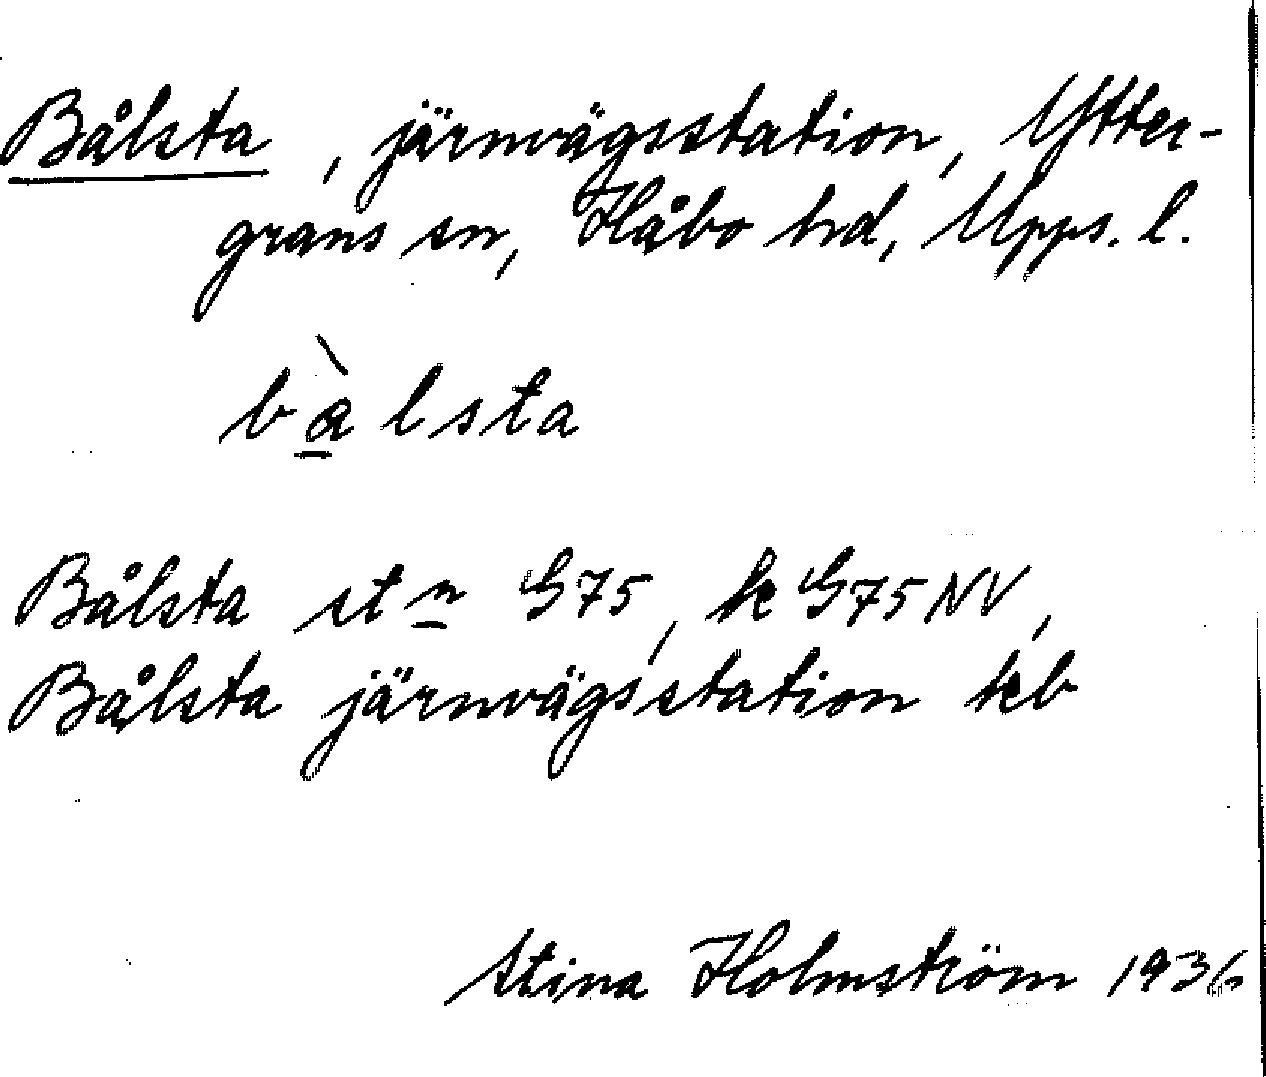 Bålsta, järnvägsstation, Ytter-
grans sn, Håbo hd, Upps. l.
bàlsta
Bålsta stn G75, tk G75NV,
Bålsta järnvägsstation tkb
Stina Holmström 1936